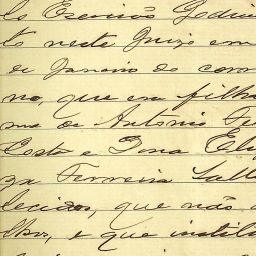 lo Escrivão Godin
to neste Juizo em
de Janeiro do corr
no, que era filha
ma de Antonio Fe
Costa e Dona Eli
za Ferreira Sall
lecidos, que não
lhos, e que instit